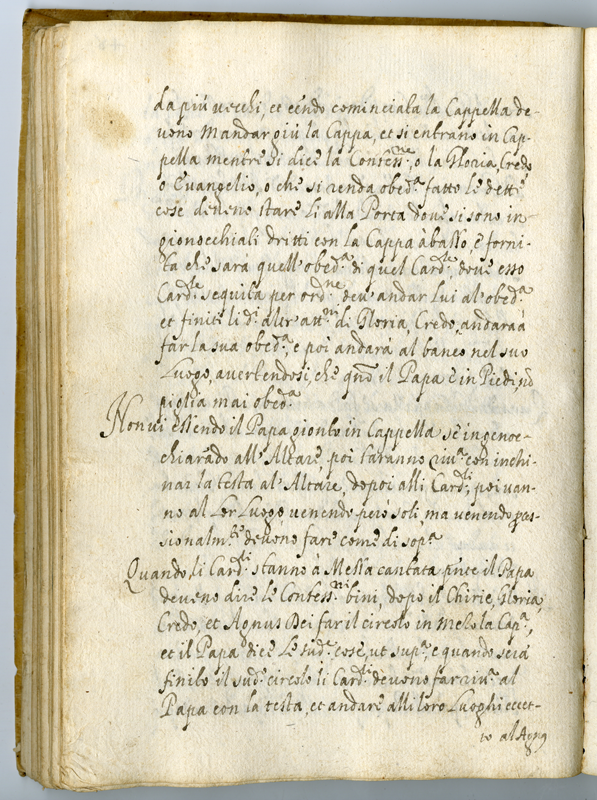 da più vecchi, et eẽndo cominciata la Cappella de-
vono mandar giù la Cappa, et si entrano in Cap-
pella mentre si dice la Confess.ne, o la Gloria, Credo
o Evangelio, o che si renda obed.a fatto le dette
cose deveno stare li alla Porta dove si sono in-
gionocchiati dritti con la Cappa à basso, e forni-
ta che sarà quell'obed.a di quel Card.le dove esso
Card.le seguita per ord.ne deu' andar lui al obed.a
et finiti li d.i altr' att.ni di Gloria, Credo, andarà a
far la sua obed.a, e poi andarà al banco nel suo
Luogo, avertendosi, che qño il Papa è in Piedi, nõ
piglia mai obed.a
Non vi essendo il Papa gionto in Cappella se ingenoc-
chiarãdo all'Altare, poi faranno riv.a con inchi-
nar la testa al' Altare, dopoi alli Card.li, poi van-
no al Lor Luogo, venendo però soli, ma venendo pces-
sionalm.te deveno fare come di sop.a
Quando li Card.li stanno à Messa cantata pñte il Papa
deveno dire le Confess.ni bini, dopo il Chirie, Gloria,
Credo, et Agnus Dei far il circolo in mezo la Cap.a,
et il Papa dice le sud.e cose, ut sup.a, e quando serà
finito il sud.o circolo li Card.li devono far riv.a al
Papa con la testa, et andare alli loro Luoghi eccet-
to al Agnus